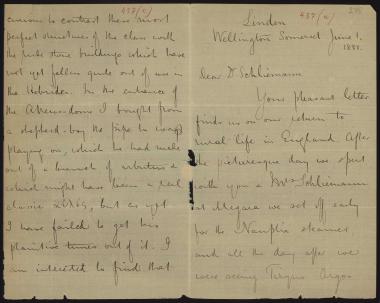 437(a)
curious to contrast these most
perfect structures of the class with
the rude stone buildings which have
not yet fallen quite out of use in
the Hebrides. In the entrance
of the Atreus-dome I bought from
a shepherd-boy the pipe he was
playing on, which he had made
out of a branch of arbutus &
which might have been a real
classic αὐλός, but as yet
I have failed to get his
plaintive tunes out of it. I
am interested to find that
437(a)
Linden
Wellington Somerset June 1.
Dear Dr Schliemann
Your pleasant letter
finds us on our return to
rural life in England. After
the picturesque day we spent
with you & Mrs Schliemann
at Megara we set off early
for the Nauplia steamer
and all the day after we
were seeing Tiryns Argos